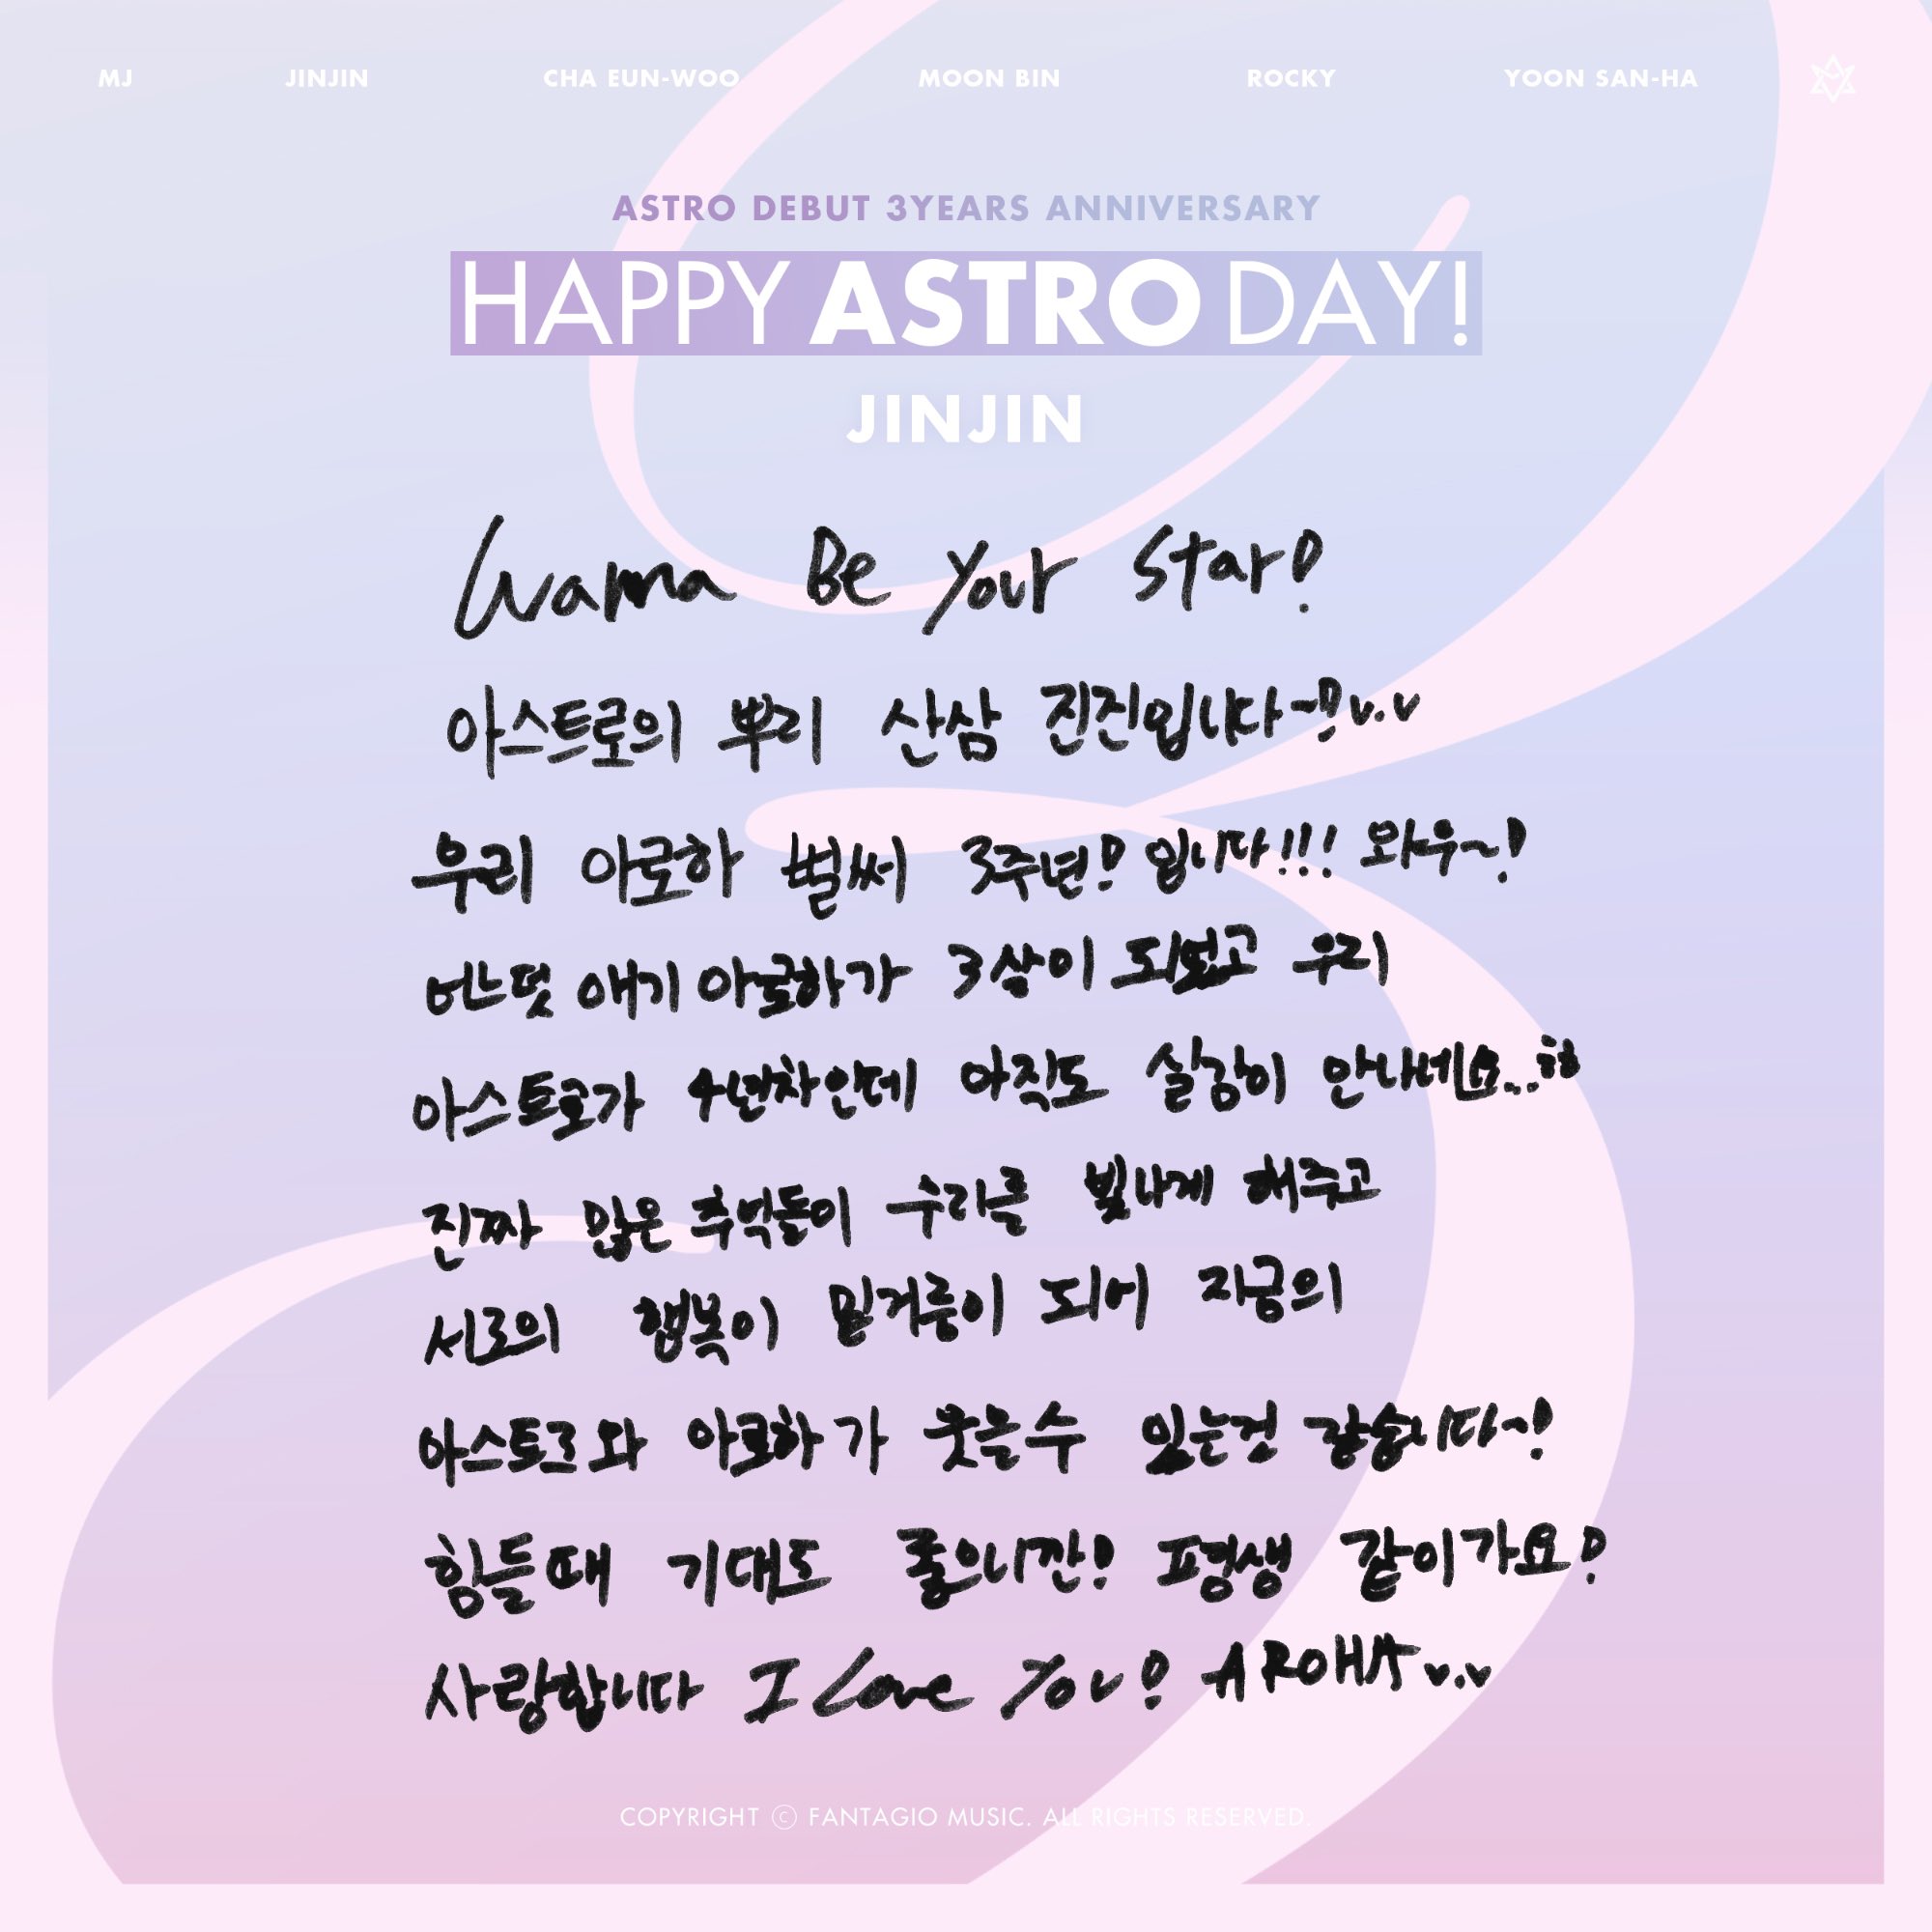 MJ JINJIN CHA EUN-WOO MOON BIN ROCKY YOON SAN-HA
ASTRO DEBUT 3YEARS ANNIVERSARY
HAPPY ASTRO DAY!
JINJIN
Wanna Be Your Star!
아스트로의 뿌리 산삼 진진입니다~!!v.v
우리 아로하 벌써 3주년! 입니다!!! 와우~!
어느덧 애기 아로하가 3살이 되었고 우리
아스트로가 4년차인데 아직도 실감이 안나네요...ㅎㅎ
진짜 많은 추억들이 우리를 빛나게 해주고
서로의 행복이 밑거름이 되어 지금의
아스트로와 아로하가 웃을수 있는것 같습니다~!
힘들때 기대도 좋으니깐! 평생 같이가요!
사랑합니다 I Love You! AROHA v.v
COPYRIGHT ⓒ FANTAGIO MUSIC. ALL RIGHTS RESERVED.